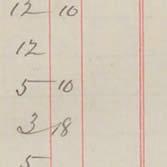 12 10
12
5 10
3 18
5